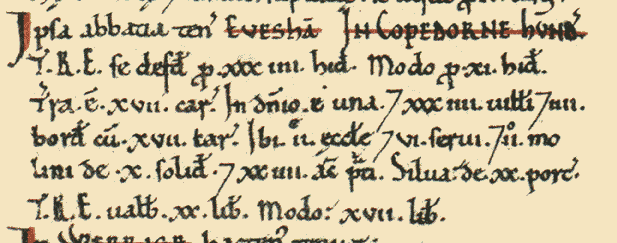 Ipsa abbatia ten' EVESHĀ. IN COPEDORNE HUND'.
T.R.E. se defd' p. xxxiiii. hid'. Modo p. xi. hid'.
Tra. ē. xvii. car'. In dn̄io. ē una. 7 xxxiiii. uilli 7 iiii.
bord' cū. xvii. car'. Ibi. ii. eccl'e 7 vi. serui. 7 ii. mo
lini de .x. solid'. 7 xxiiii. ac' p'ti. Silua: de .xx. porc'.
T.R.E. ualb'. xx. lib'. Modo: xvii. lib'.